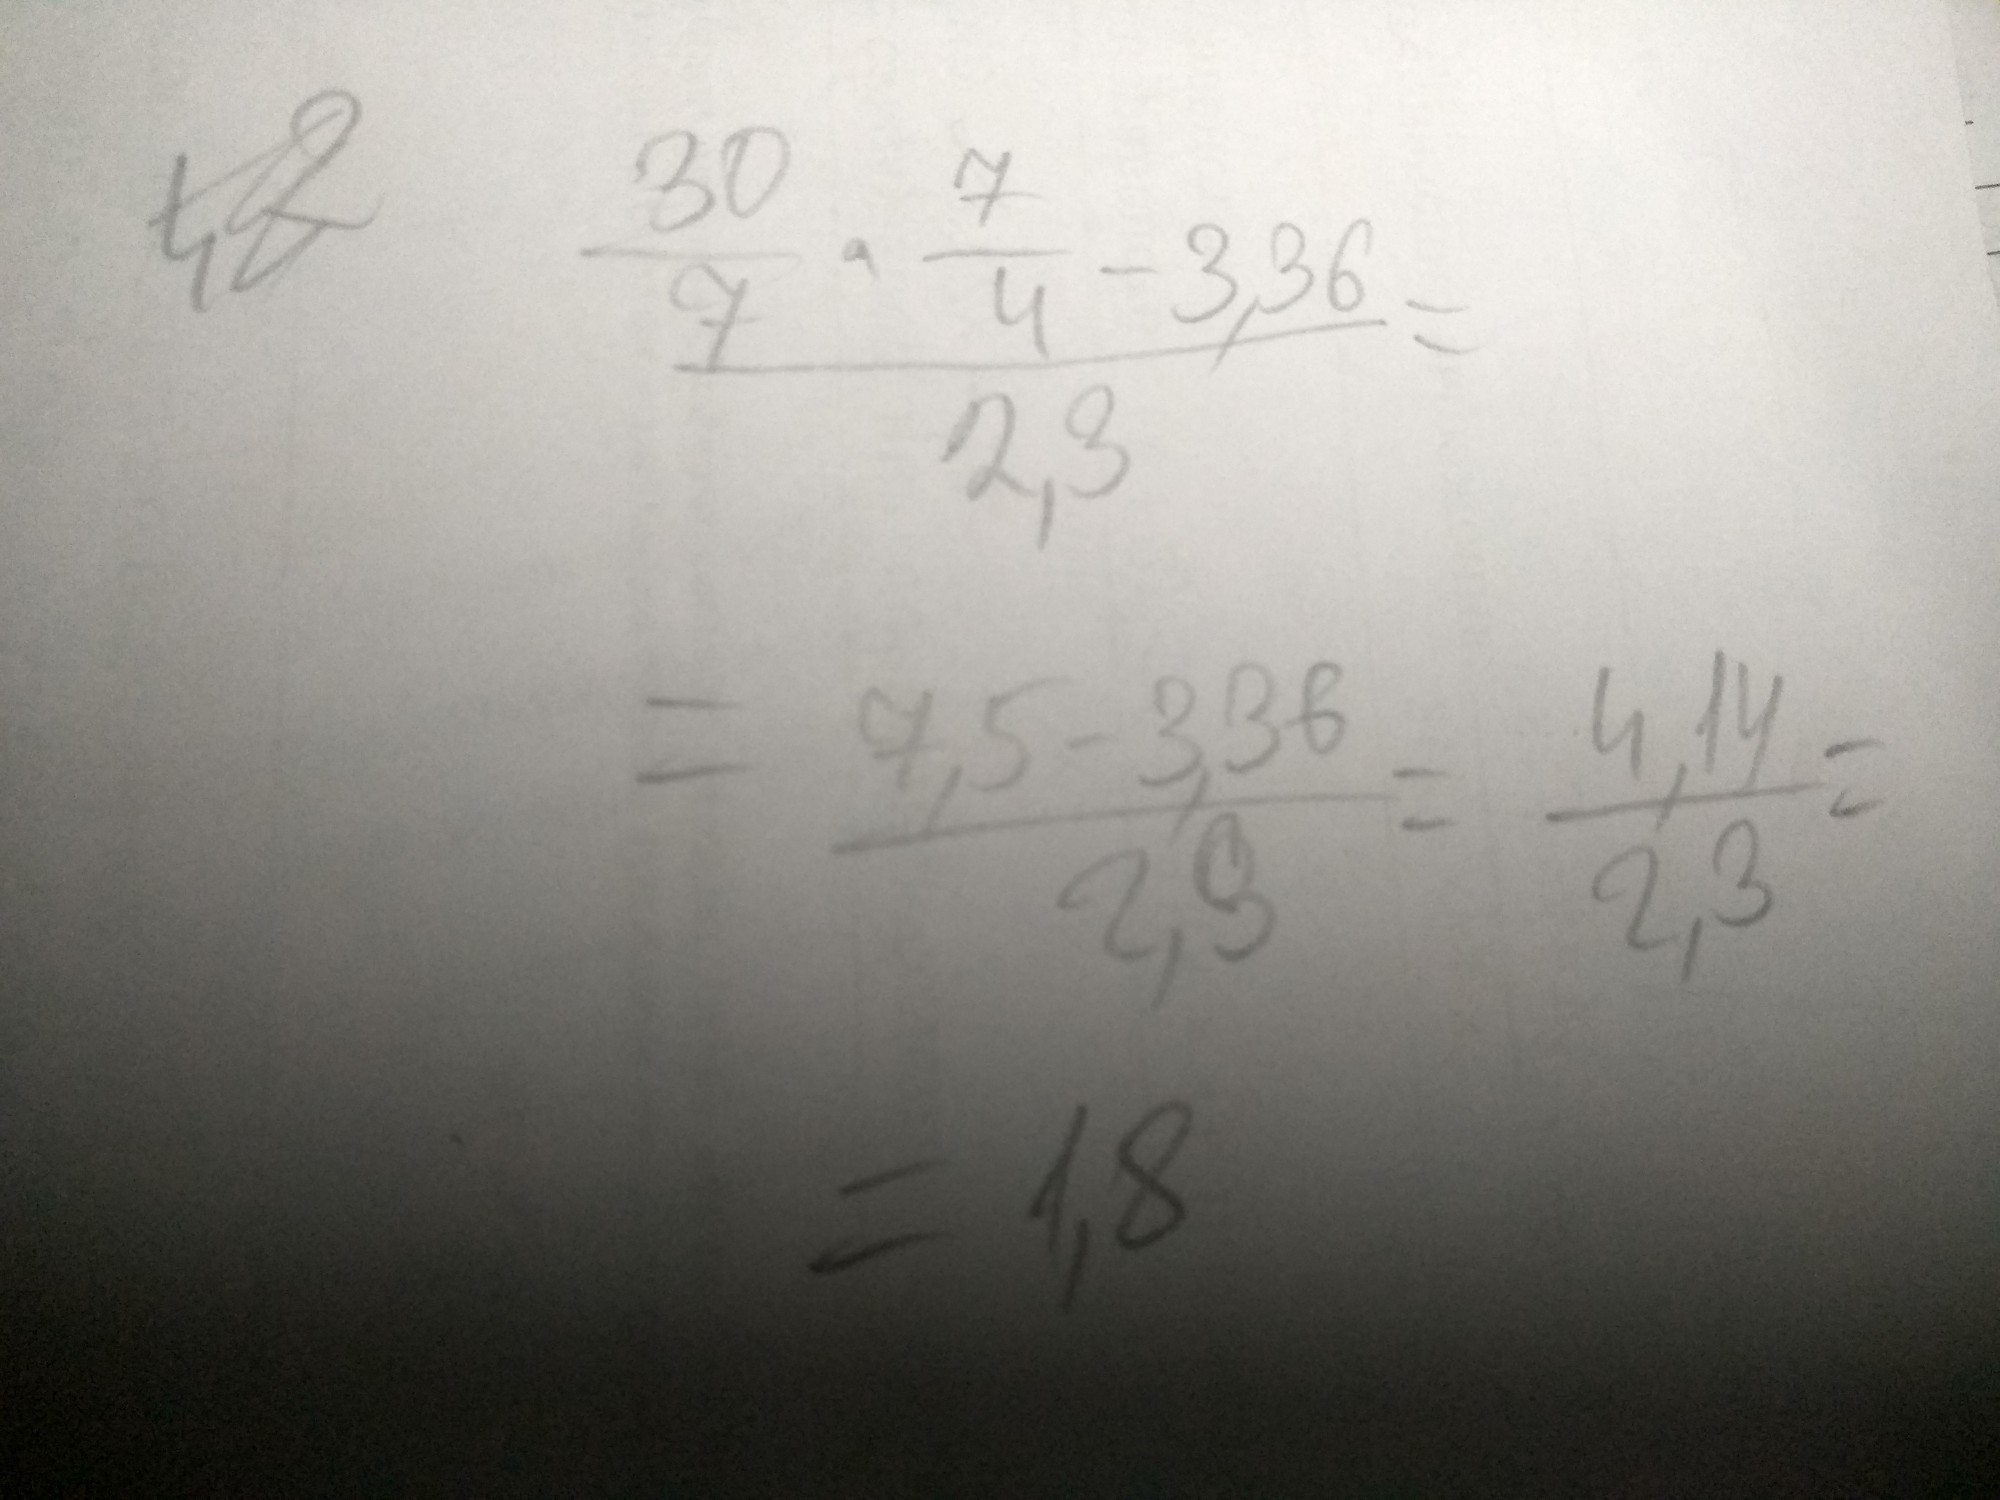 30/7 · 7/4 - 3,36 / 2,3 =
= 7,5 - 3,36 / 2,3 = 4,14 / 2,3 =
= 1,8